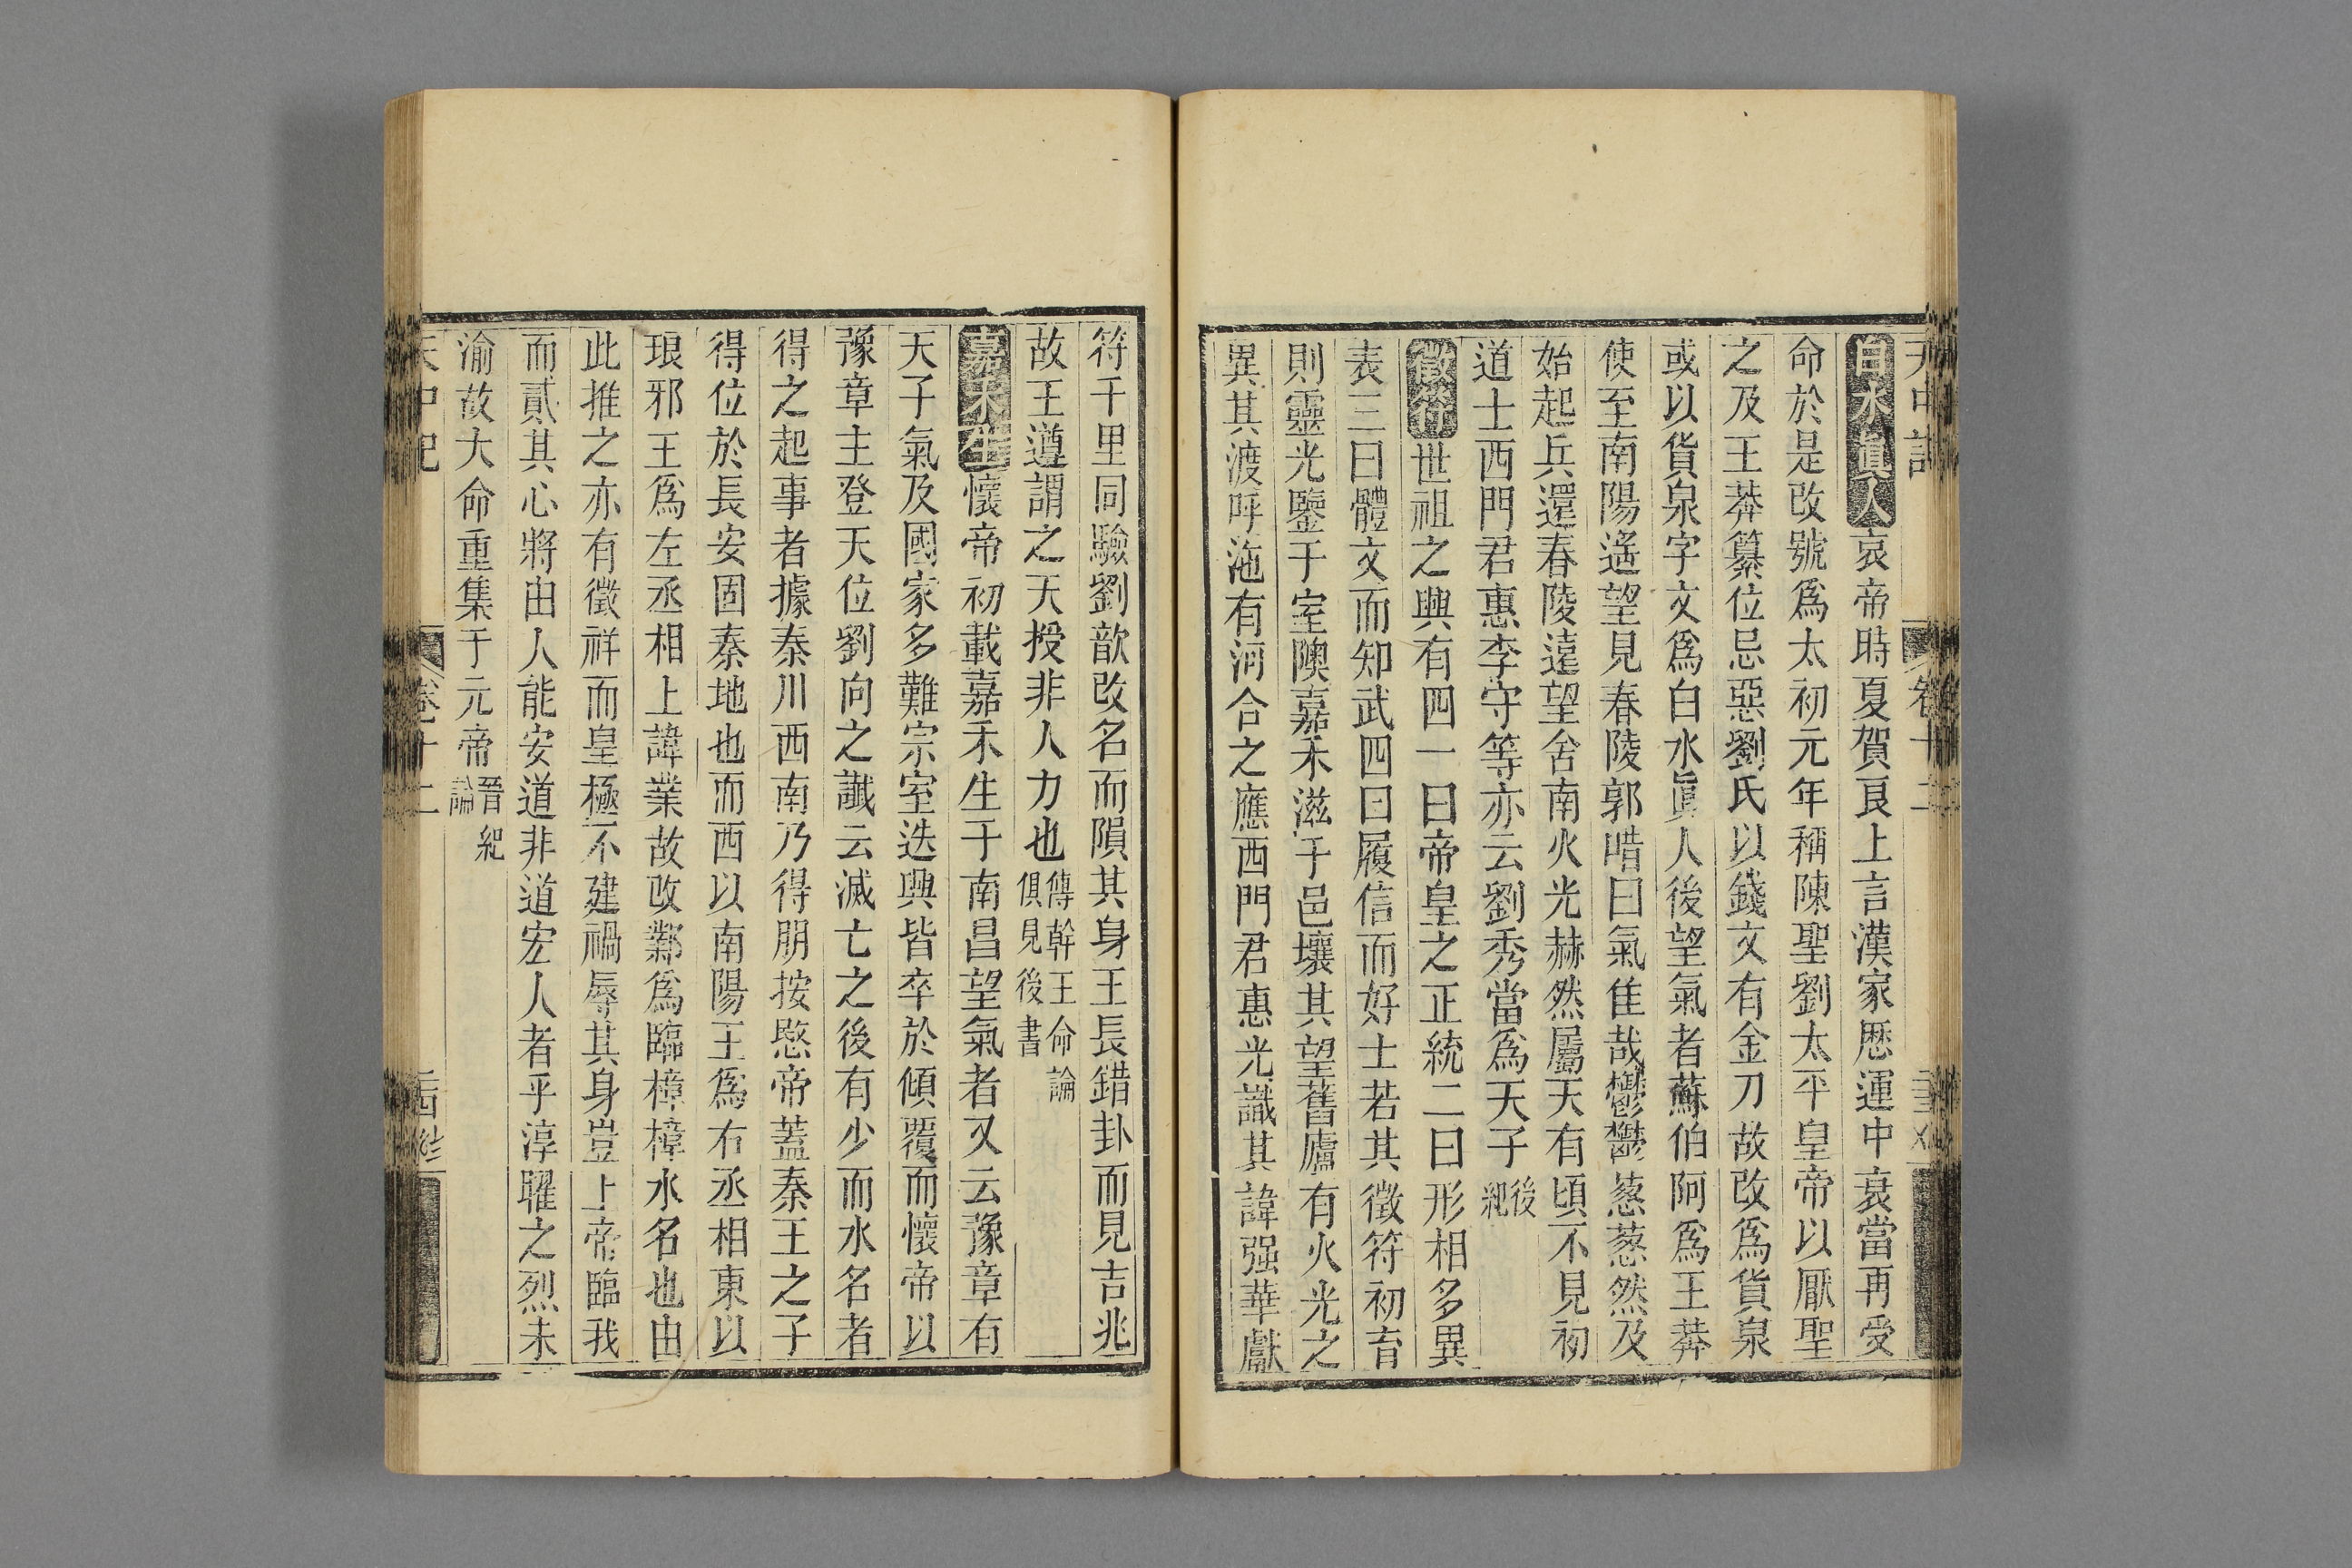 天中記 卷十二
白水眞人哀帝時夏賀良上言漢家歷運中衰當再受
命於是改號爲太初元年稱陳聖劉太平皇帝以厭聖
之及王莽簒位忌惡劉氏以錢文有金刀故改爲貨泉
或以貨泉字文爲白水眞人後望氣者蘇伯阿爲王莽
使至南陽遙望見舂陵郭唶曰氣佳哉鬱鬱葱葱然及
始起兵還舂陵遠望舍南火光赫然屬天有頃不見初
道士西門君惠李守等亦云劉秀當爲天子後紀
徵符世祖之興有四一曰帝皇之正統二曰形相多異
表三曰體文而知武四曰履信而好士若其徵符初育
則靈光鑒于室隩嘉禾滋于邑壤其望舊廬有火光之
異其渡呼沲有河合之應西門君惠光識其諱强華獻
符千里同驗劉歆改名而隕其身王長錯卦而見吉兆
故王遵謂之天授非人力也傅幹王命論俱見後書
嘉禾生懷帝初載嘉禾生于南昌望氣者又云豫章有
天子氣及國家多難宗室迭興皆卒於傾覆而懷帝以
豫章主登天位劉向之讖云滅亡之後有少而水名者
得之起事者據秦川西南乃得朋按愍帝蓋秦王之子
得位於長安固秦地也而西以南陽王爲右丞相東以
琅邪王爲左丞相上諱業故改鄴爲臨樟樟水名也由
此推之亦有徵祥而皇極不建禍辱其身豈上帝臨我
而貳其心將由人能安道非道宏人者乎淳耀之烈未
渝故大命重集于元帝晉紀論
天中記 卷十二